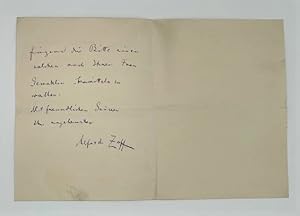 fügend die Bitte einen
solchen auch Ihrer Frau
Gemahlin übermitteln zu
wollen.
Mit freundlichen Grüssen
Ihr ergebenster
Alfred Zoff